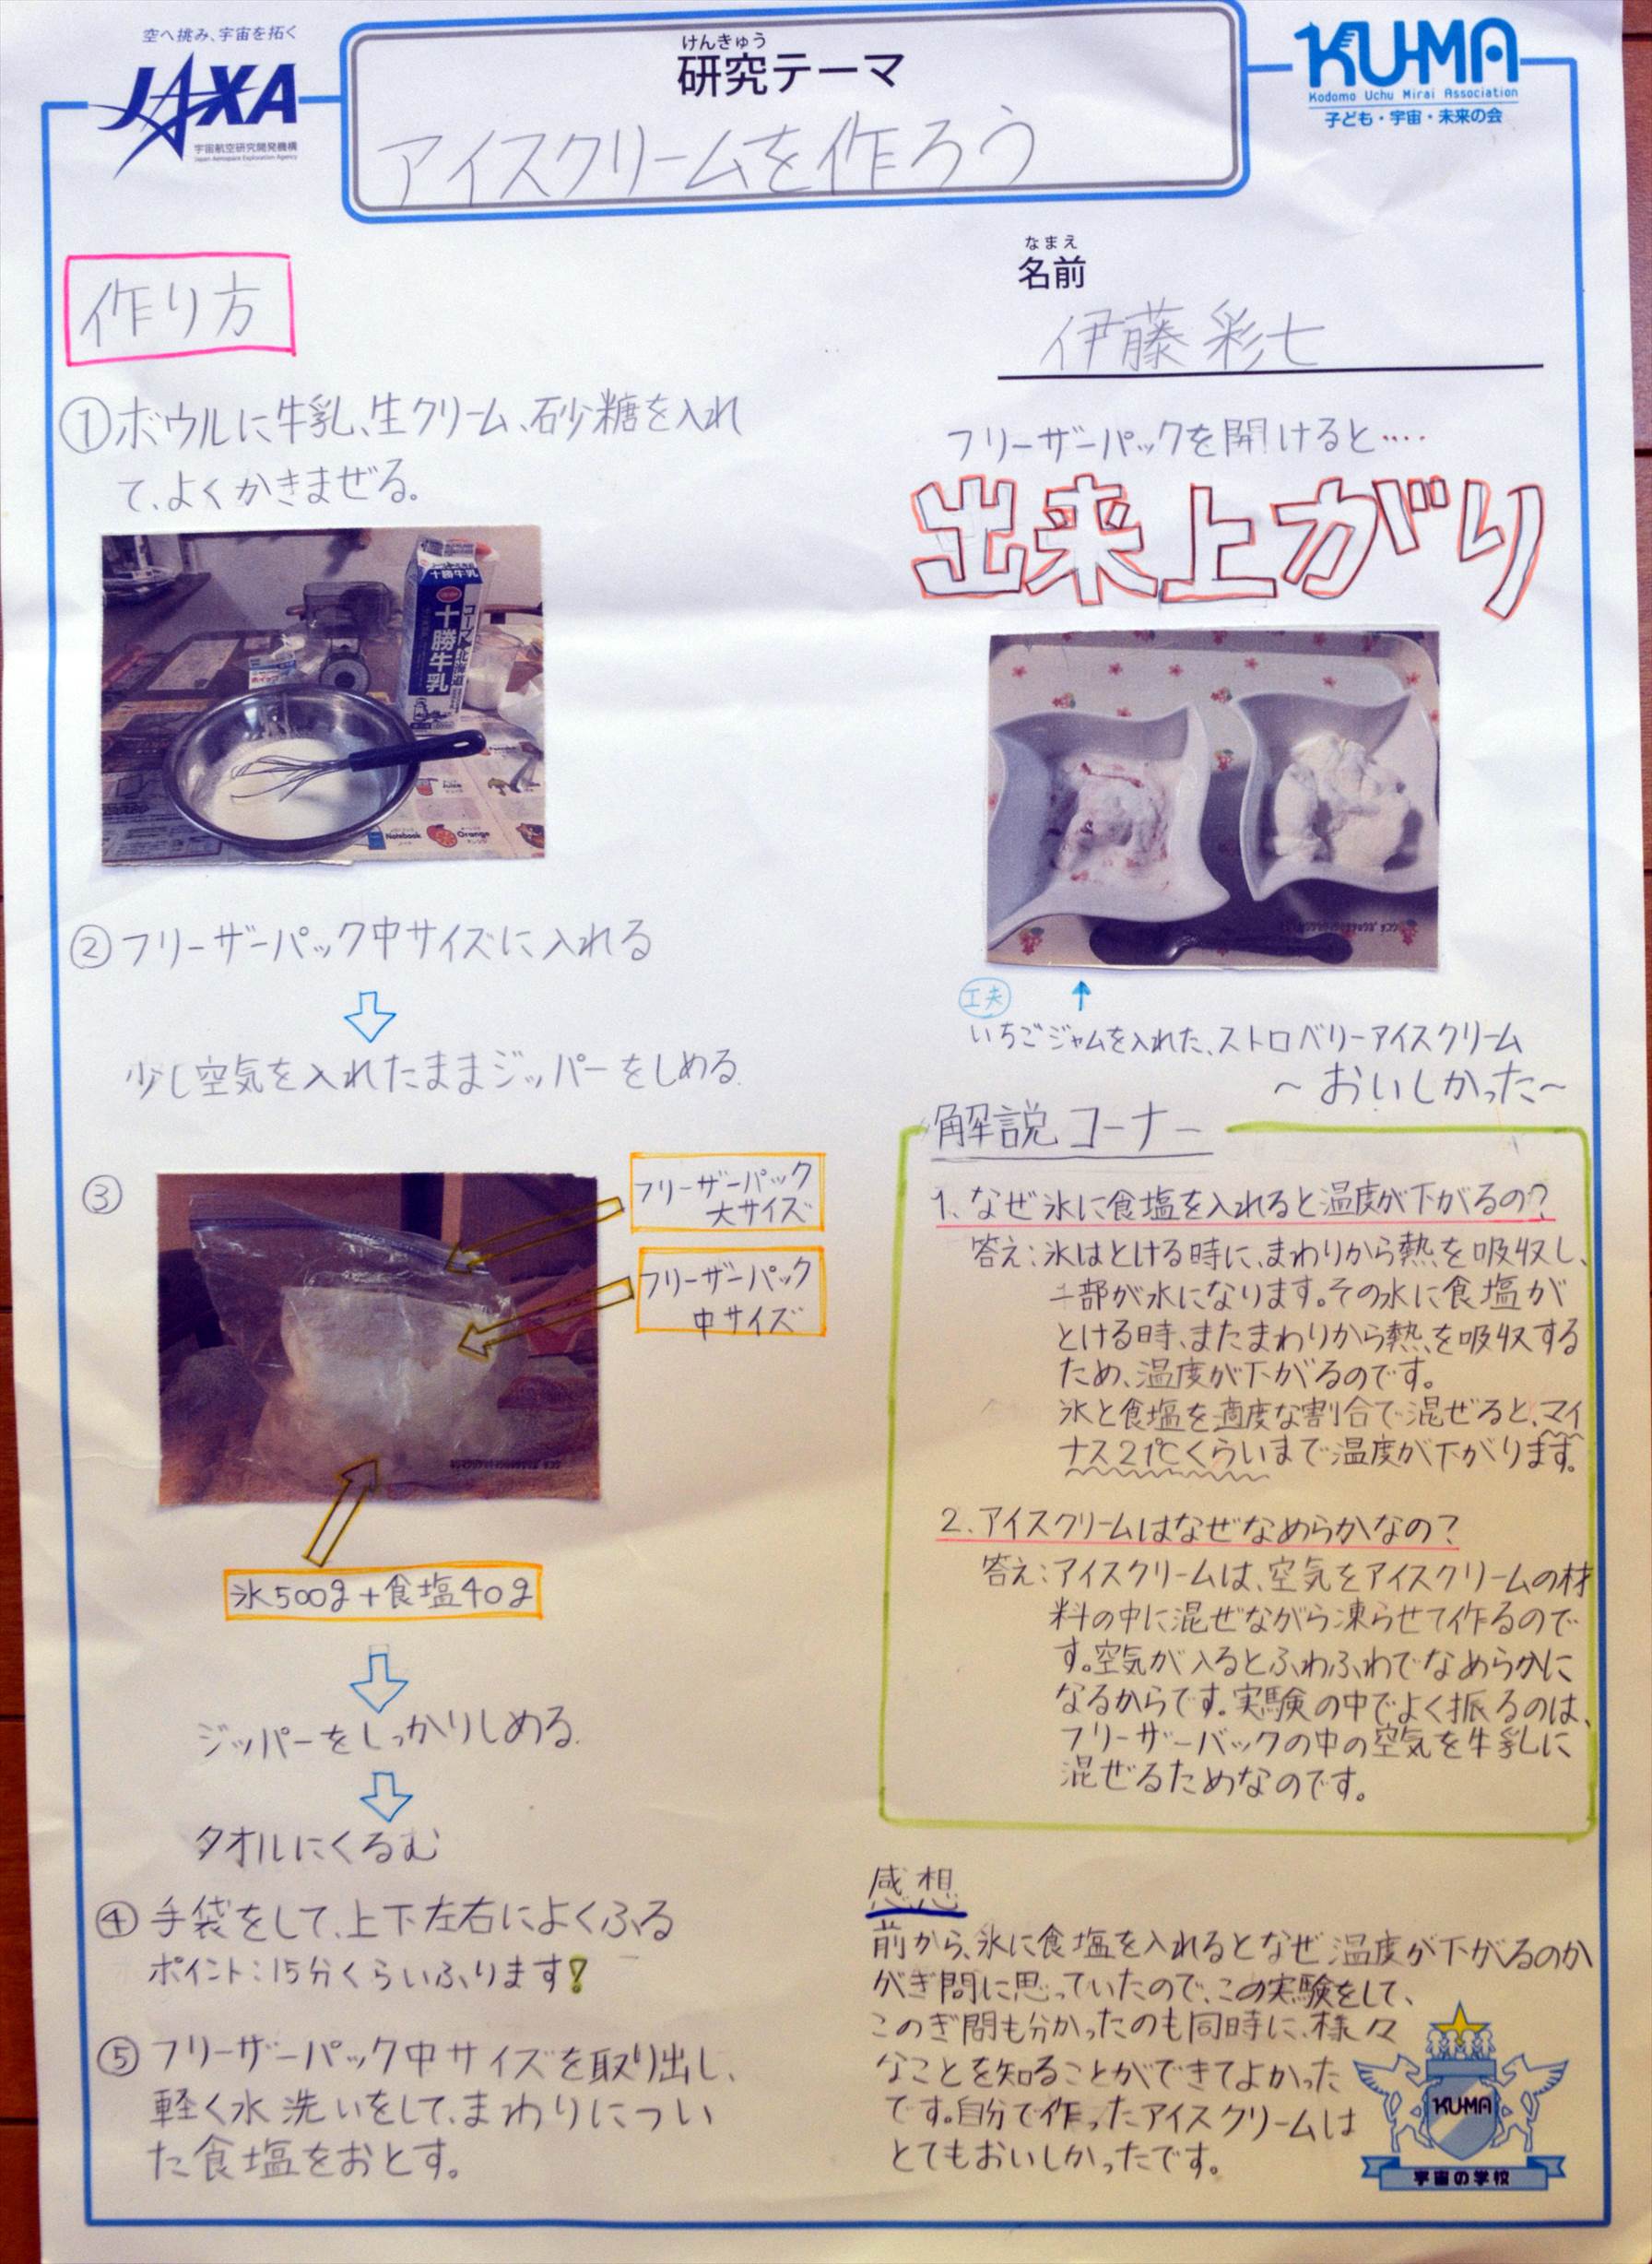 空へ挑み、宇宙を拓く
JAXA
宇宙航空研究開発機構
Japan Aerospace Exploration Agency
けんきゅう
研究テーマ
アイスクリームを作ろう
KU-MA
Kodomo Uchu Mirai Association
子ども・宇宙・未来の会
なまえ
名前
伊藤 彩七
作り方
①ボウルに牛乳、生クリーム、砂糖を入れ
て、よくかきまぜる。
十勝牛乳
コープ北海道
十勝牛乳
ホイップ
Notebook
Orange
②フリーザーパック中サイズに入れる
少し空気を入れたままジッパーをしめる
③
フリーザーパック
大サイズ
フリーザーパック
中サイズ
氷500g+食塩40g
ジッパーをしっかりしめる
タオルにくるむ
④手袋をして、上下左右によくふる
ポイント:15分くらいふります!
⑤フリーザーパック中サイズを取り出し、
軽く水洗いをして、まわりについ
た食塩をおとす。
フリーザーパックを開けると‥‥
出来上がり
工夫
いちごジャムを入れた、ストロベリーアイスクリーム
～おいしかった～
解説コーナー
1、なぜ氷に食塩を入れると温度が下がるの?
答え:氷はとける時に、まわりから熱を吸収し、
一部が水になります。その水に食塩が
とける時、またまわりから熱を吸収する
ため、温度が下がるのです。
氷と食塩を適度な割合で混ぜると、マイ
ナス21℃くらいまで温度が下がります。
2.アイスクリームはなぜなめらかなの?
答え:アイスクリームは、空気をアイスクリームの材
料の中に混ぜながら凍らせて作るので
す。空気が入るとふわふわでなめらかに
なるからです。実験の中でよく振るのは、
フリーザーバックの中の空気を牛乳に
混ぜるためなのです。
感想
前から、氷に食塩を入れるとなぜ温度が下がるのか
がぎ問に思っていたので、この実験をして、
このぎ問も分かったのも同時に、様々
なことを知ることができてよかった
です。自分で作ったアイスクリームは
とてもおいしかったです。
KU-MA
宇宙の学校